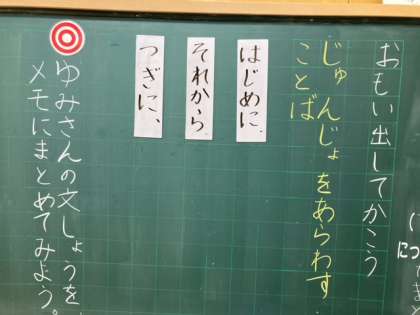 おもい出してかこう
じゅんじょをあらわす
ことば
はじめに
それから
つぎに、
ゆみさんの文しょうを
メモにまとめてみよう。